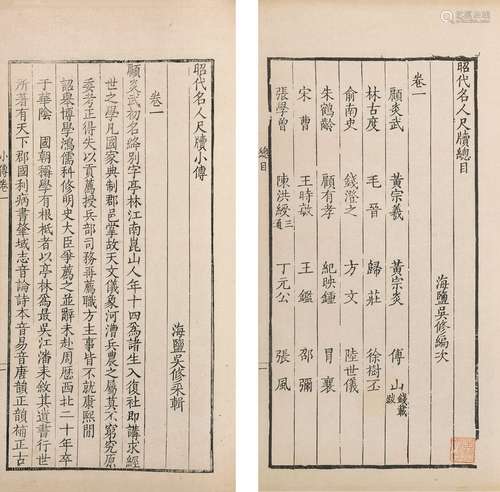 昭代名人尺牘總目
海鹽吳修編次
卷一
顧炎武 黃宗羲 黃宗炎 傅山 錢載跋
林古度 毛晉 歸莊 徐樹丕
俞南史 錢澄之 方文 陸世儀
朱鶴齡 顧有孝 紀映鍾 冒襄
宋曹 王時敏 王鑑 邵彌
張學曾 陳洪綬三通 丁元公 張風
總目
昭代名人尺牘小傳
海鹽吳修采輯
卷一
顧炎武初名絳別字亭林江南崑山人年十四爲諸生入復社即講求經
世之學凡國家典制郡邑掌故天文儀象河漕兵農之屬莫不窮究原
委考正得失以貢薦授兵部司務再薦職方主事皆不就康熙閒
詔舉博學鴻儒科修明史大臣爭薦之並辭未赴周歷西北二十年卒
于華陰 國朝稱學有根柢者以亭林爲最吳江潘耒敘其遺書行世
所著有天下郡國利病書肇域志音論詩本音易音唐韻正韻補正古
小傳卷一